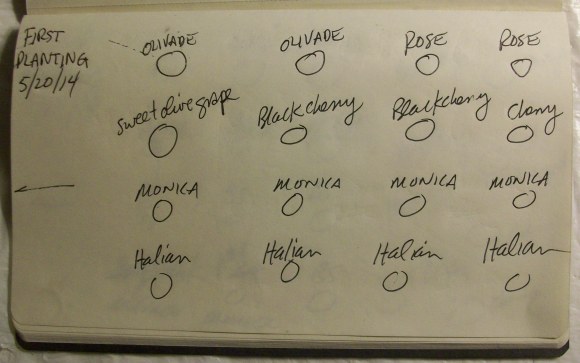 FIRST
PLANTING
5/20/14
OLIVADE OLIVADE ROSE ROSE
sweet olive grape Black cherry Black cherry Cherry
MONICA MONICA MONICA MONICA
Italian Italian Italian Italian